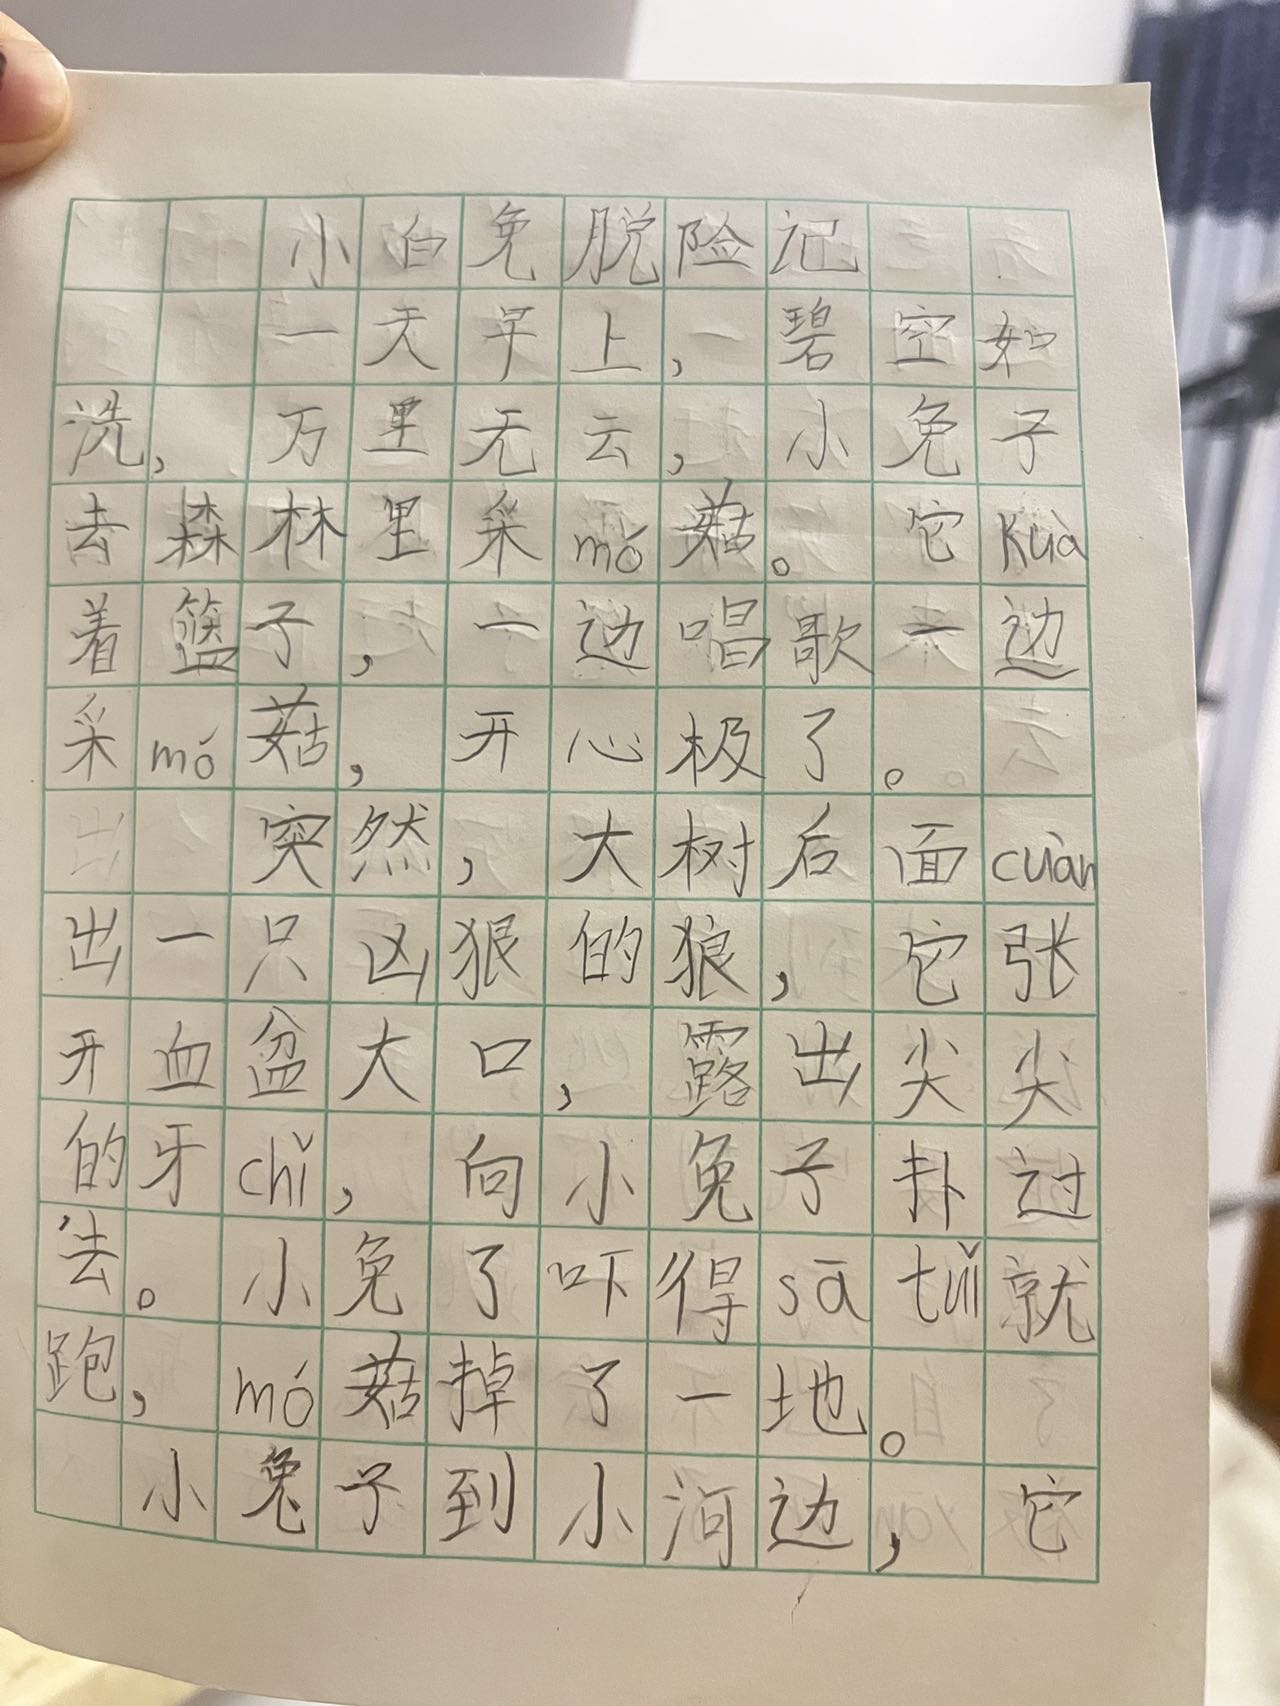 小白免脱险记
一天早上，碧空如
洗，万里无云，小免子
去森林里采mó菇。它kuà
着篮子，一边唱歌一边
采mó菇，开心极了。
突然，大树后面cuàn
出一只凶狠的狼，它张
开血盆大口，露出尖尖
的牙chǐ，向小免子扑过
去。小免了吓得sā tuǐ就
跑，mó菇掉了一地。
小兔子到小河边，它